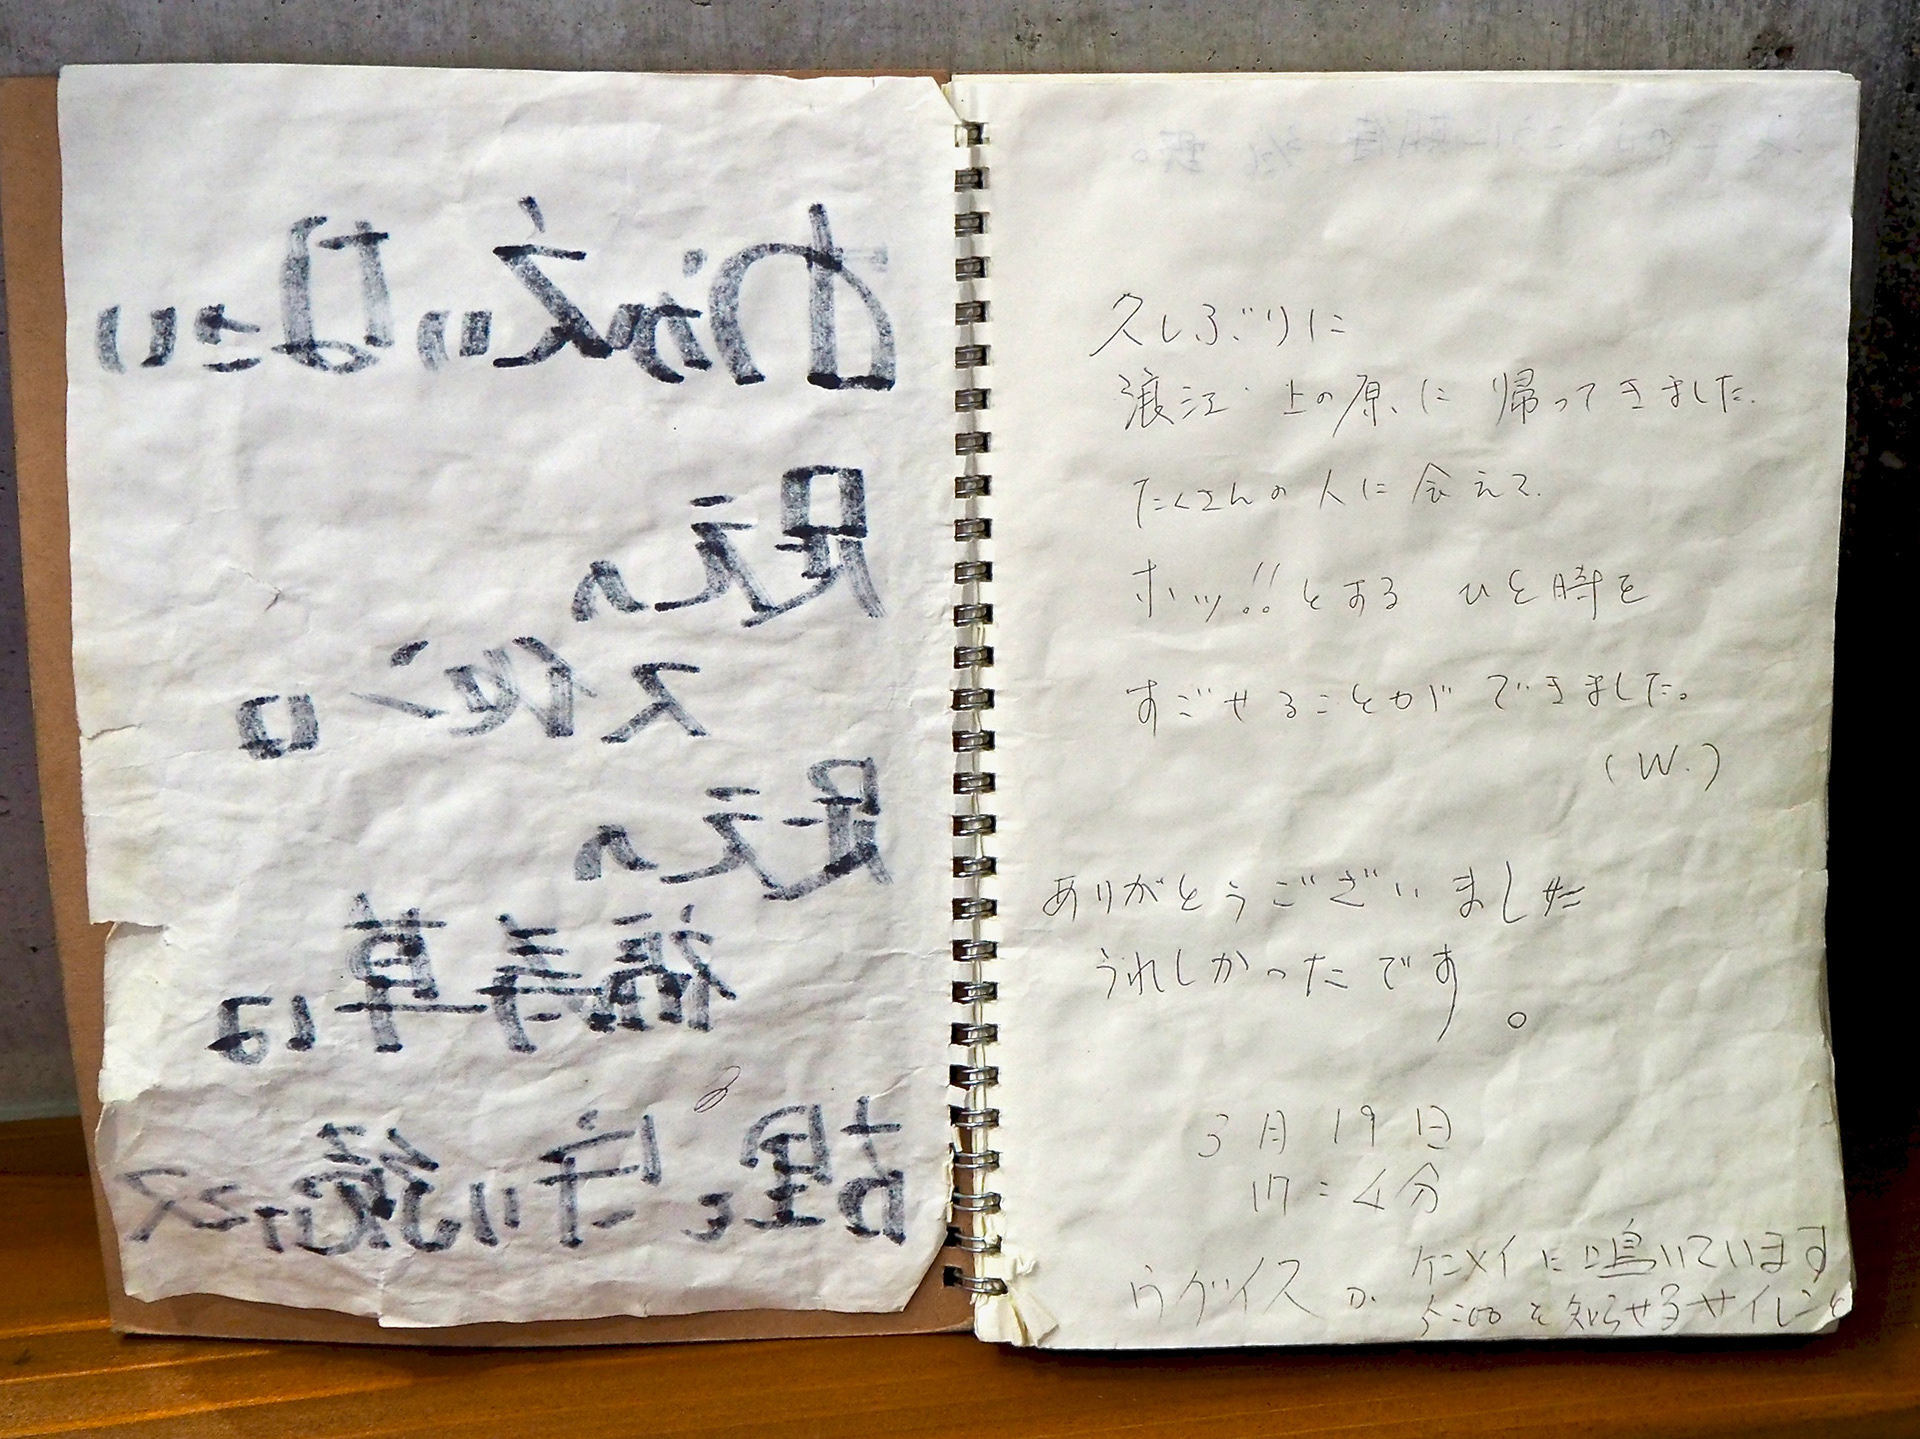 見えん
見えん
福寿草は
古里を守り続け
久しぶりに
浪江・上の原、に 帰ってきました.
たくさんの人に会えて.
ホッ!!とする ひと時を
すごせることが できました。
(W.)
ありがとうございました
うれしかったです。
3月19日
17:4分
ウグイスが ケンメイに鳴いています
5:00を知らせるサイレンと